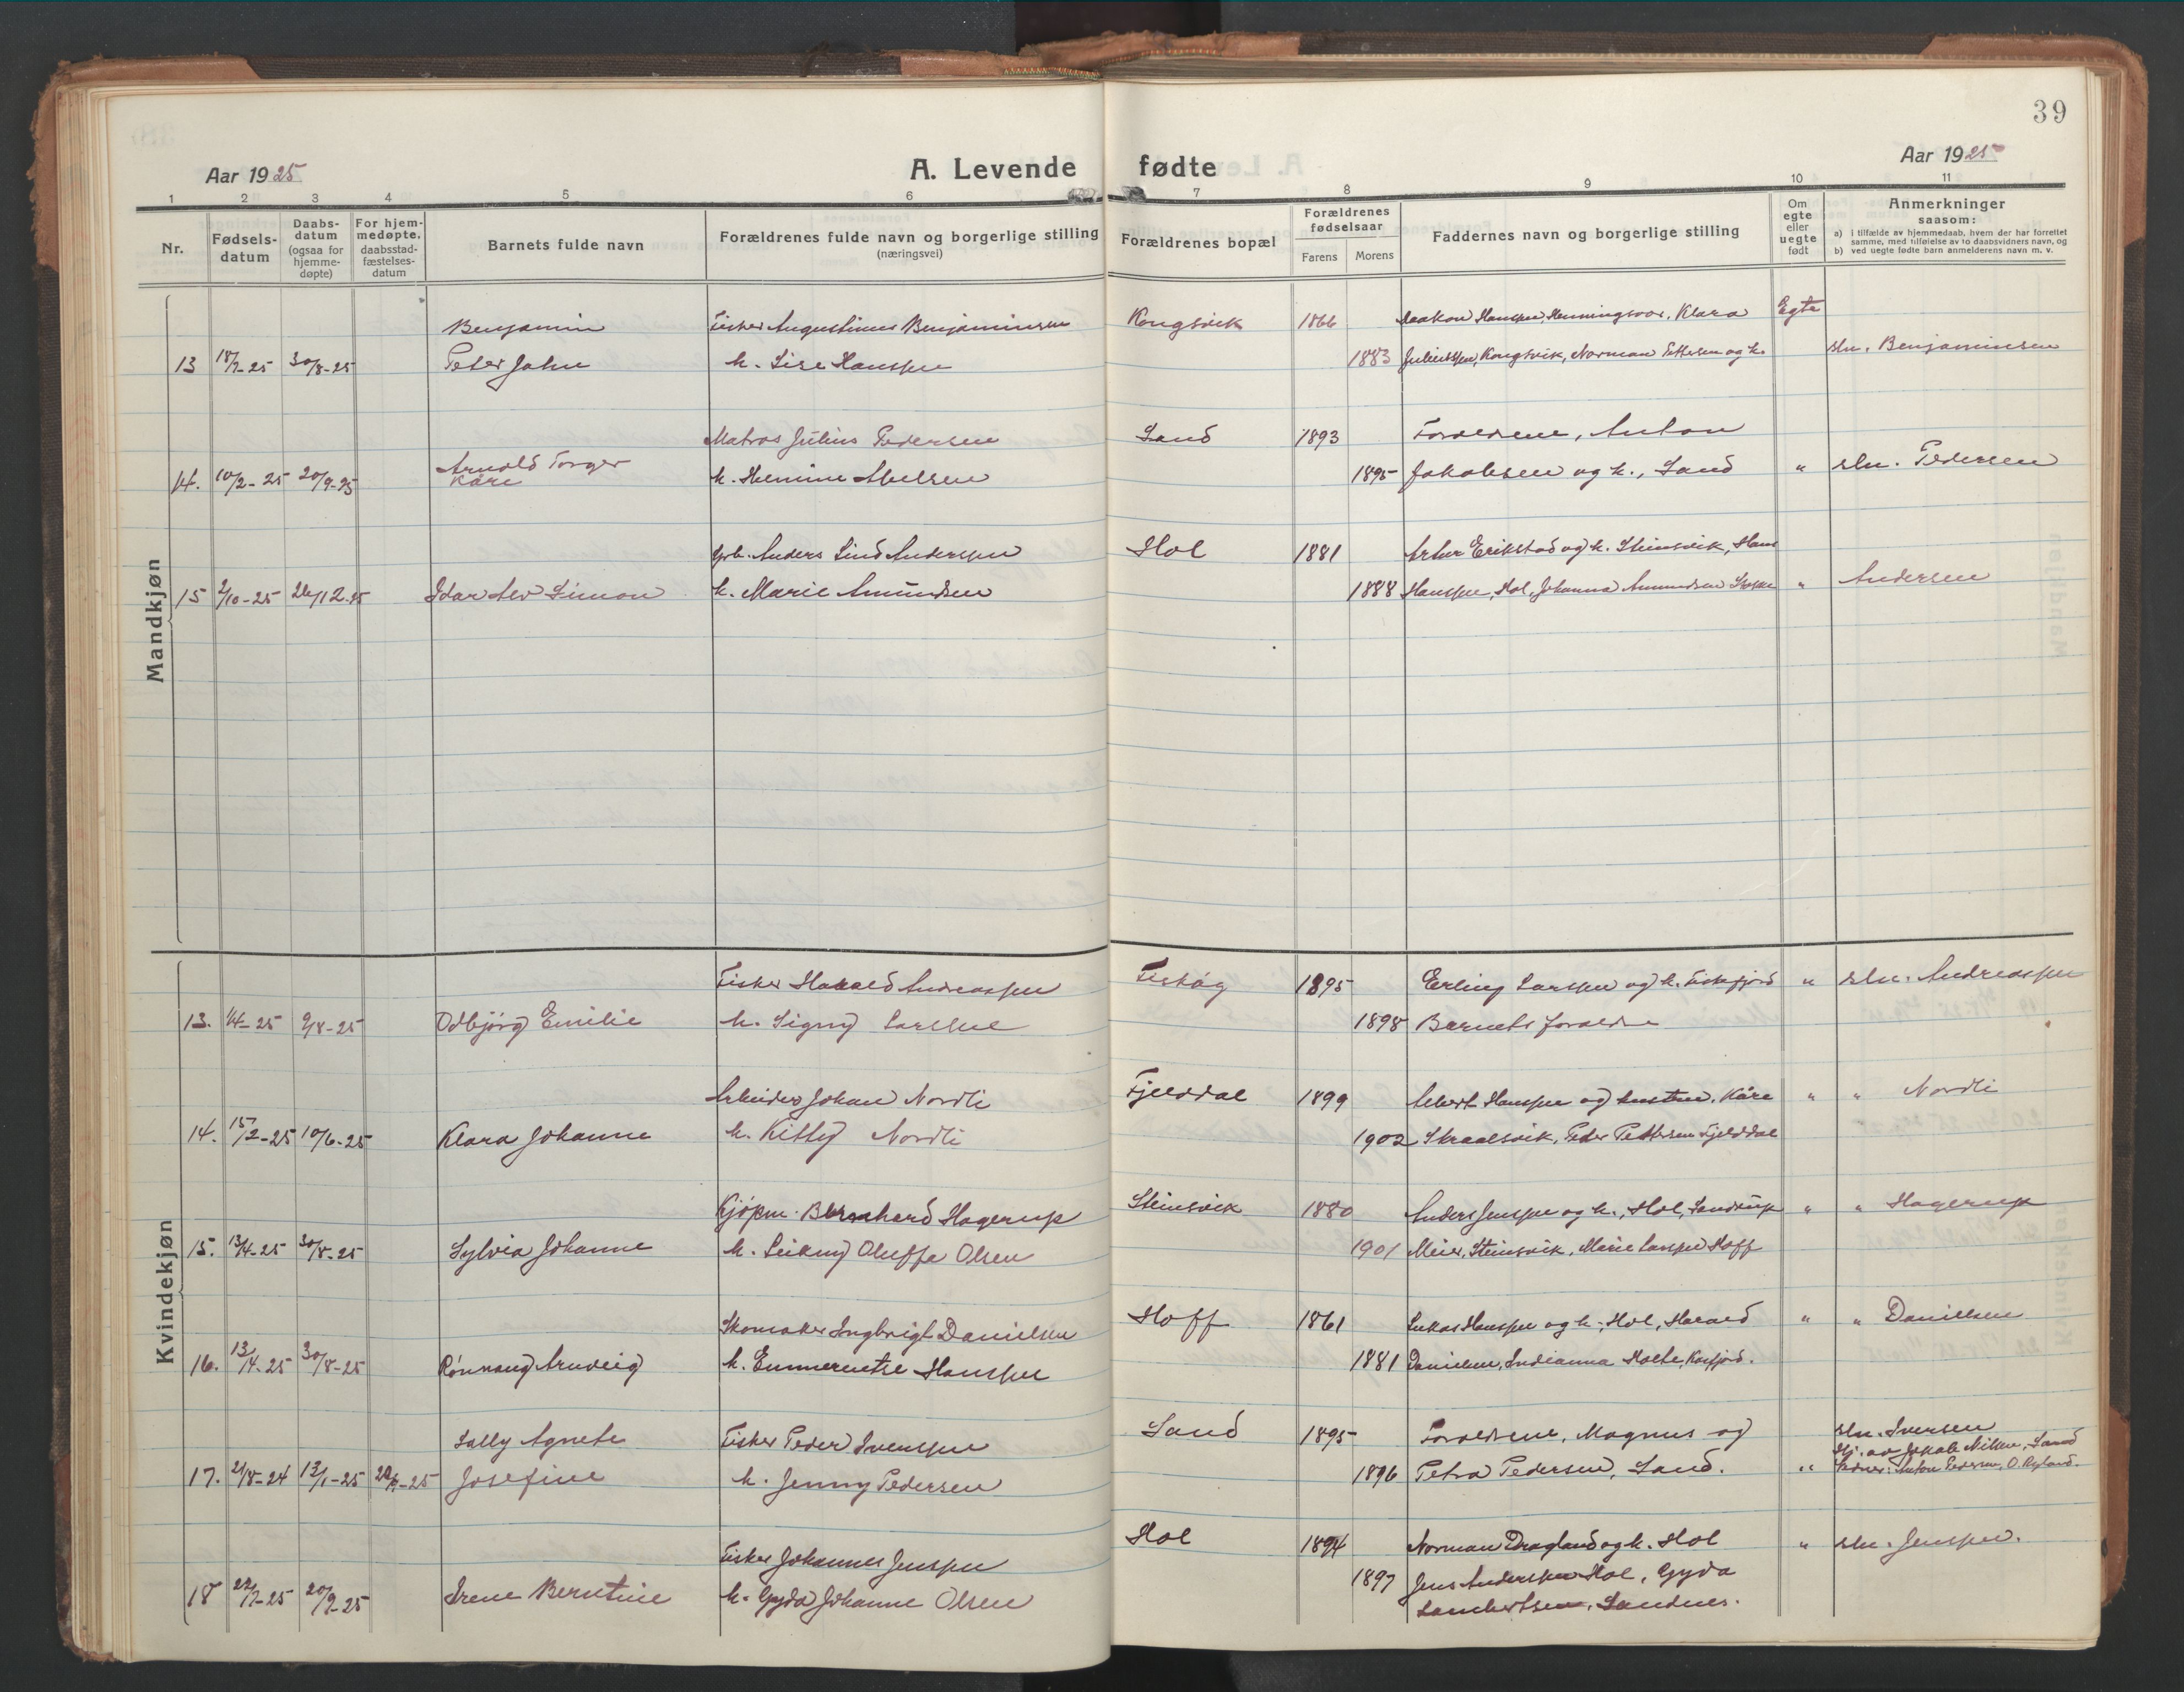 39
Aar 1925
A. Levende fødte
Aar 1925
1 2 3 4 5 6 7 8 9 10 11
Nr.
Fødsels-
datum
Daabs-
datum
(ogsaa for
hjemme-
døpte)
For hjem-
medøpte.
daabsstad-
fæstelses-
datum
Barnets fulde navn
Forældrenes fulde navn og borgerlige stilling
(næringsvei)
Forældrenes bopæl
Forældrenes
fødselsaar
Farens Morens
Faddernes navn og borgerlige stilling
Om
egte
eller
uegte
født
Anmerkninger
saasom:
a) i tilfælde av hjemmedaab, hvem der har forrettet
samme, med tilføielse av to daabsvidners navn, og
b) ved uegte fødte barn anmelderens navn m. v.
Mandkjøn
Benjamin Fisker Augustinus Benjaminsen Kongsvik 1866 Haakon Hanssen, Henningsvær, Klara Egte
13 18/7-25 30/8-25 Peter John h. Lise Hanssen 1883 Juliussen, Kongsvik, Norman Pettersen og h. sln. Benjaminsen
Matros Julius Pedersen Sand 1893 Foreldrene, Anton
14. 10/2-25 20/9-25 Arnold Torger
Kåre h. Hemine Abelsen 1895 Jakobsen og h., Sand " sln. Pedersen
Anders Lind Anderssen Hol 1881 Artur Erikstad og h. Steinsvik, Hans
15 2/10-25 26/12-25 Idar Alv Simon h. Marie Amundsen 1888 Hanssen, Hol, Johanna Amundsen " Andersen
Kvindekjøn
Fisker Harald Andreassen Fiskøg 1895 Erling Larssen og h. Fiskefjord " sln. Andreassen
13. 1/4-25 9/8-25 Odbjörg Emilie h. Signy Larssen 1898 Barnets foreldre
Arbeider Johan Nordli Fjelddal 1899 Albert Hanssen og hustru, Kåre " " Nordli
14. 15/2-25 10/6-25 Klara Johanne h. Kitty Nordli 1902 Skraalsvik, Peder Pettersen Fjelddal
Kjöpm. Bernhard Hagerup Steinsvik 1880 Anders Jenssen og h., Hol, " " Hagerup
15. 13/4-25 30/8-25 Sylvia Johanne h. Leikny Oluffa Olsen 1901 Meier, Steinsvik, Marie Larssen Hoff
Skomaker Ingbrigt Danielsen Hoff 1861 Lukas Hanssen og h., Hol, Harald " " Danielsen
16. 13/4-25 30/8-25 Rönnaug Arnveig h. Emmerentse Hanssen 1881 Danielsen, Indianna Holte, Kasfjord.
Sally Agnete Fisker Peder Ivenssen Sand 1895 Foreldrene, Magnus og sln. Iversen
Hj. av Jakob Nilsen, Sand
17. 21/8-24 13/1-25 20/9-25 Josefine h. Jenny Pedersen 1896 Petra Pedersen, Sand. " Anton Pedersen, O. Ryland.
Fisker Johannes Jenssen Hol 1894 Norman Dragland og h. Hol " sln. Jenssen.
18 22/7-25 20/9-25 Irene Berntine h. Gyda Johanne Olsen 1897 Jens Anderssen Hol, Gyda
Lambertsen, Sandnes.